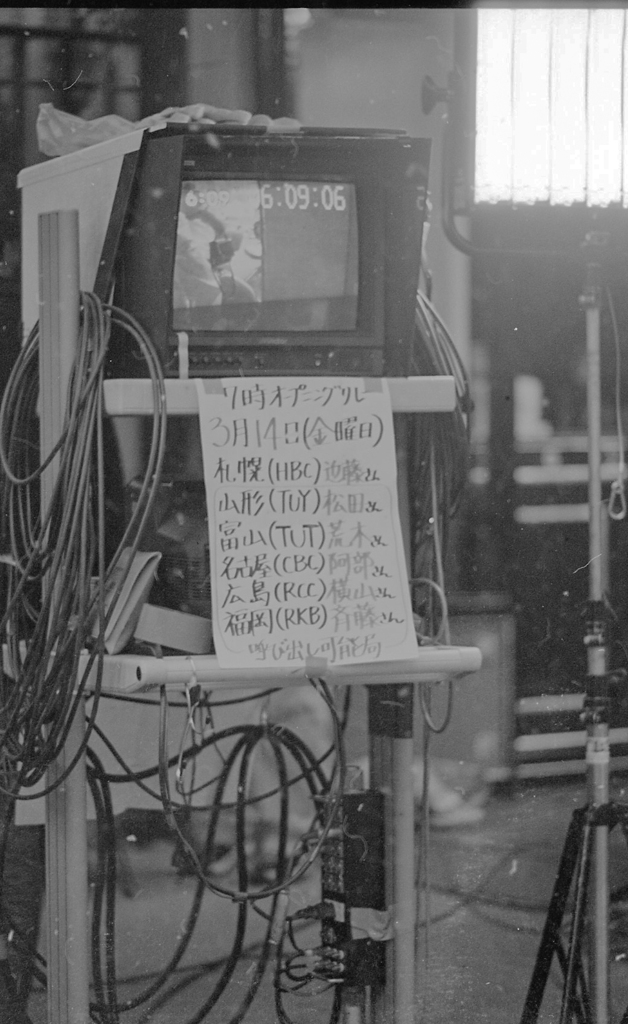 6:09 6:09:06
7時オープニングリレー
3月14日(金曜日)
札幌(HBC)近藤さん
山形(TUY)松田さん
富山(TUT)荒木さん
名古屋(CBC)阿部さん
広島(RCC)横山さん
福岡(RKB)斉藤さん
呼び出し可能局